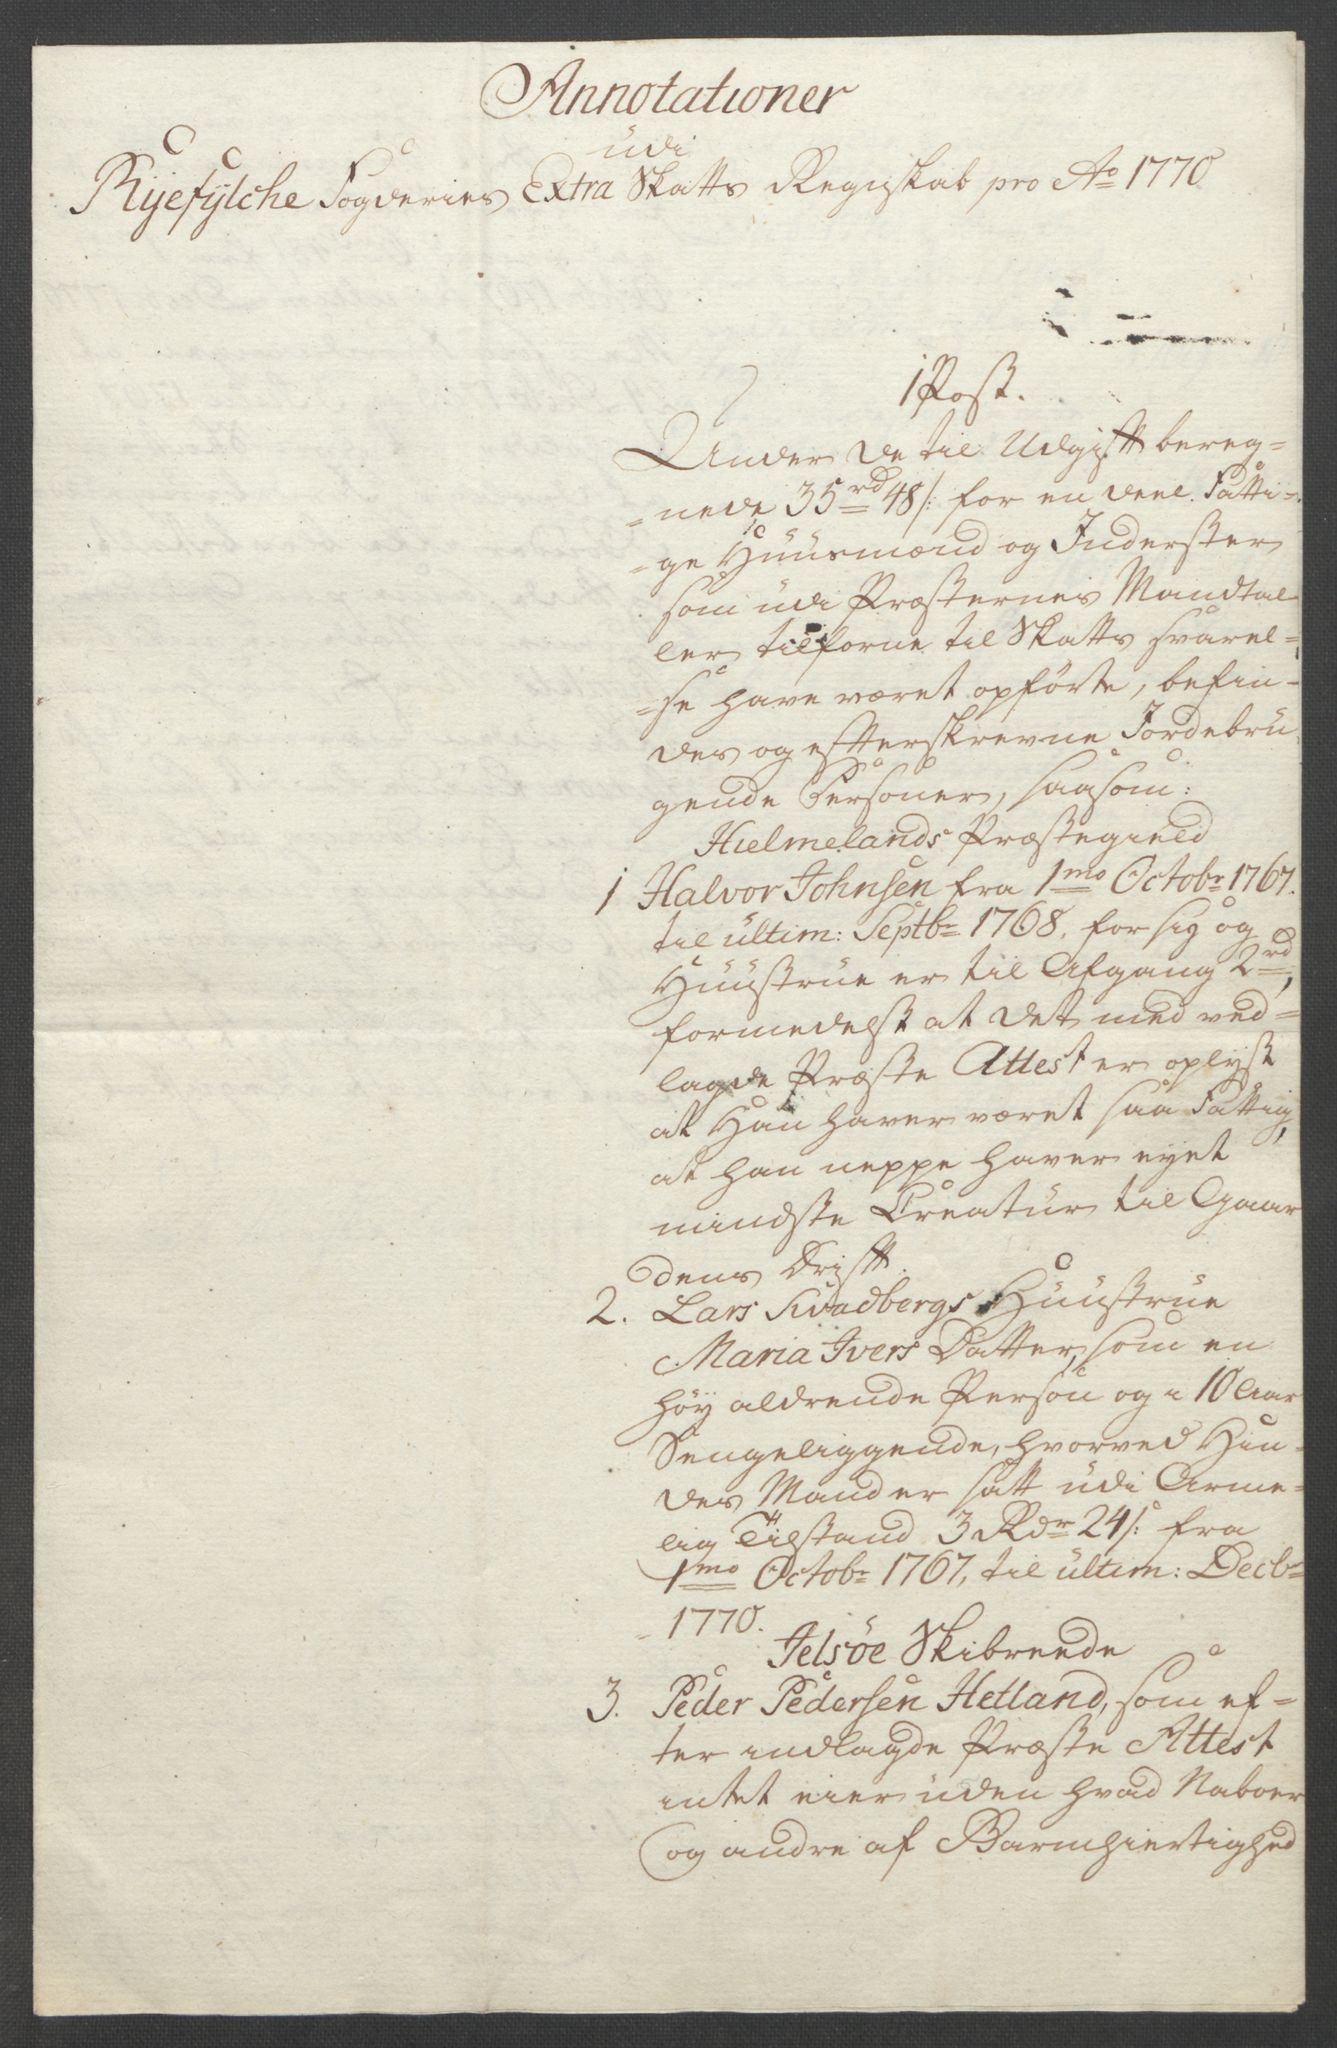 Annotationer
udi
Ryefylche Fogderies Extra Skatts Regnskab pro Ao 1770
1 Post.
Under de til Udgift bereg-
-nede 35rd 48s: for en deel Fatti-
-ge Huusmænd og Inderster
som udi Præsternes Mandtal
ler tilforne til Skatts svarel-
-se have været opförte, befin-
des og efterskrevne Jordebru
gende Personer, saasom:
Hielmelands Præstegield
1 Halvor Johnsen fra 1mo Octobr 1767.
til ultim: Septbr 1768, for sig og
Huustrue er til Afgang 2rd,
formedelst at det med ved-
lagde Præste Attest er oplyst
at Han haver været saa Fattig,
at han neppe haver eyet
mindste Creatur til Gaar
dens Drift.
2. Lars Kvadbergs Huustrue
Maria Ivers Datter, som en
höy aldrende Person og i 10 Aar
Sengeliggende, hvorved Hen-
des Mand er satt udi Arme-
lig Tilstand 3 Rdr 24s: fra
1mo Octobr 1767, til ultim: Decbr
1770.
Jelsöe Skibreede
3. Peder Pedersen Hetland, som ef-
ter indlagde Præste Attest
intet eier uden hvad Naboer
og andre af Barmhiertighed